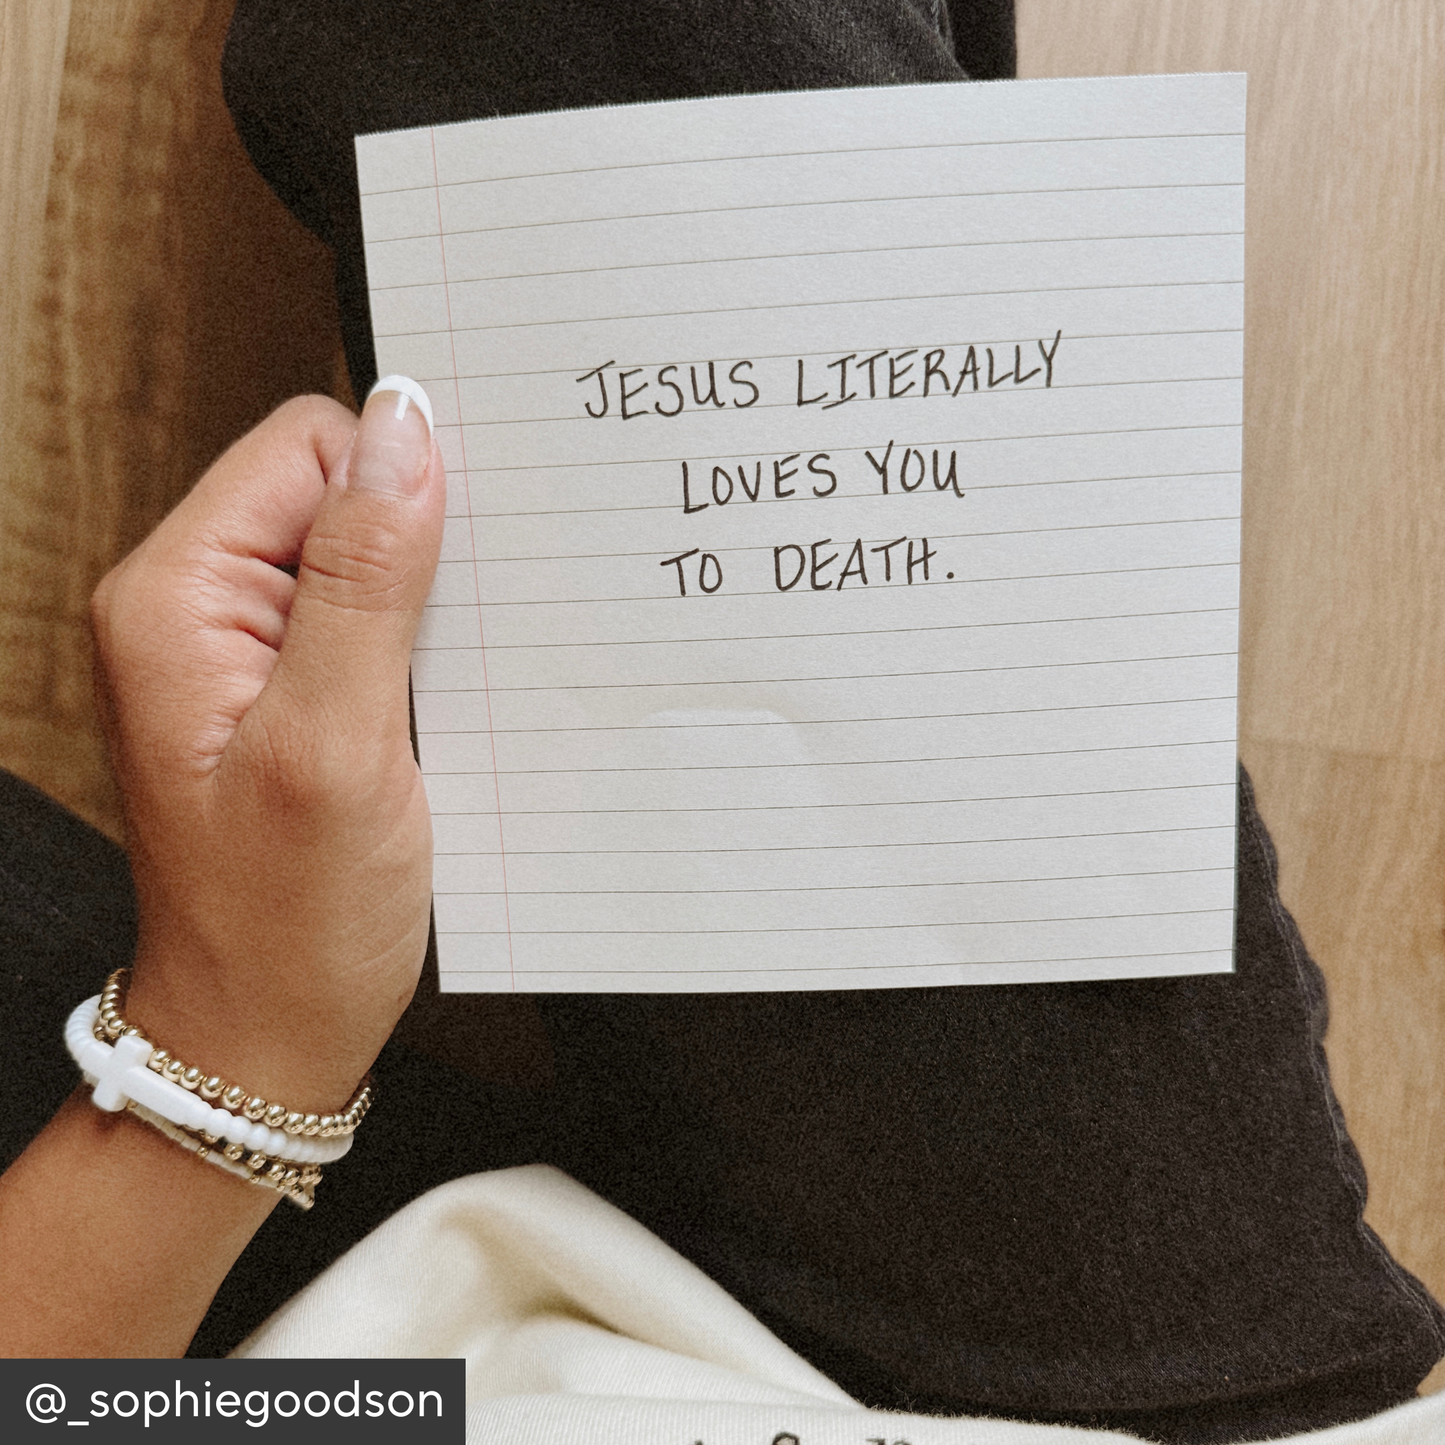 JESUS LITERALLY
LOVES YOU
TO DEATH.
@_sophiegoodson